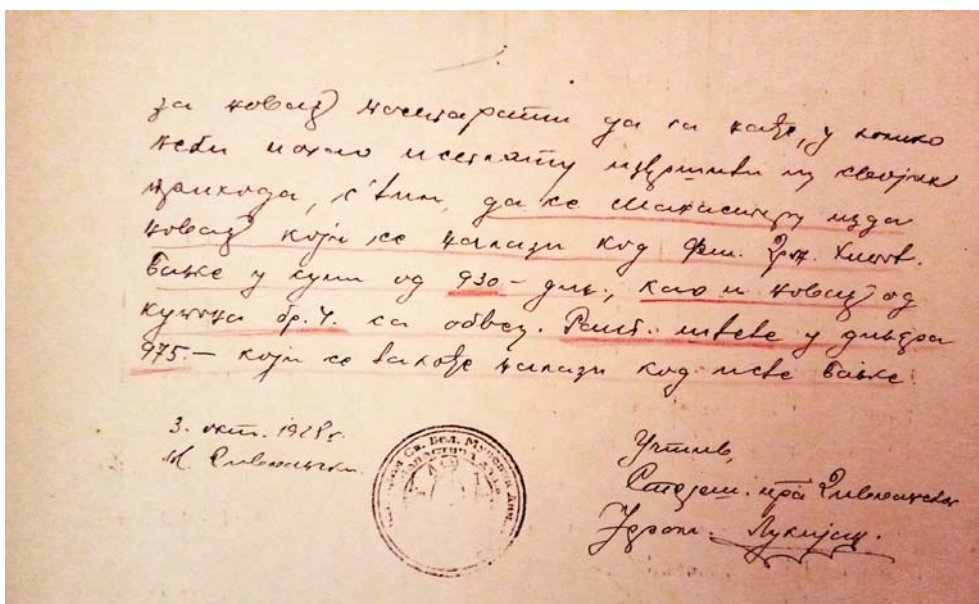 за новац постарати да га нађе, у колико
неби могао исплату извршити из својих
прихода, с' тим, да се Манастиру изда
новац који се налази код Фил. Држ. Хипот.
банке у суми од 930.- дин., као и новац од
купона бр. 4. са обвез. Ратне штете у динара
975.- који се такође налази код исте банке.
3. окт. 1928 г.
М.
Св. Вел. Муч. Дим.
Учтив,
Старјеш. ман.
Јером. Лукијан.